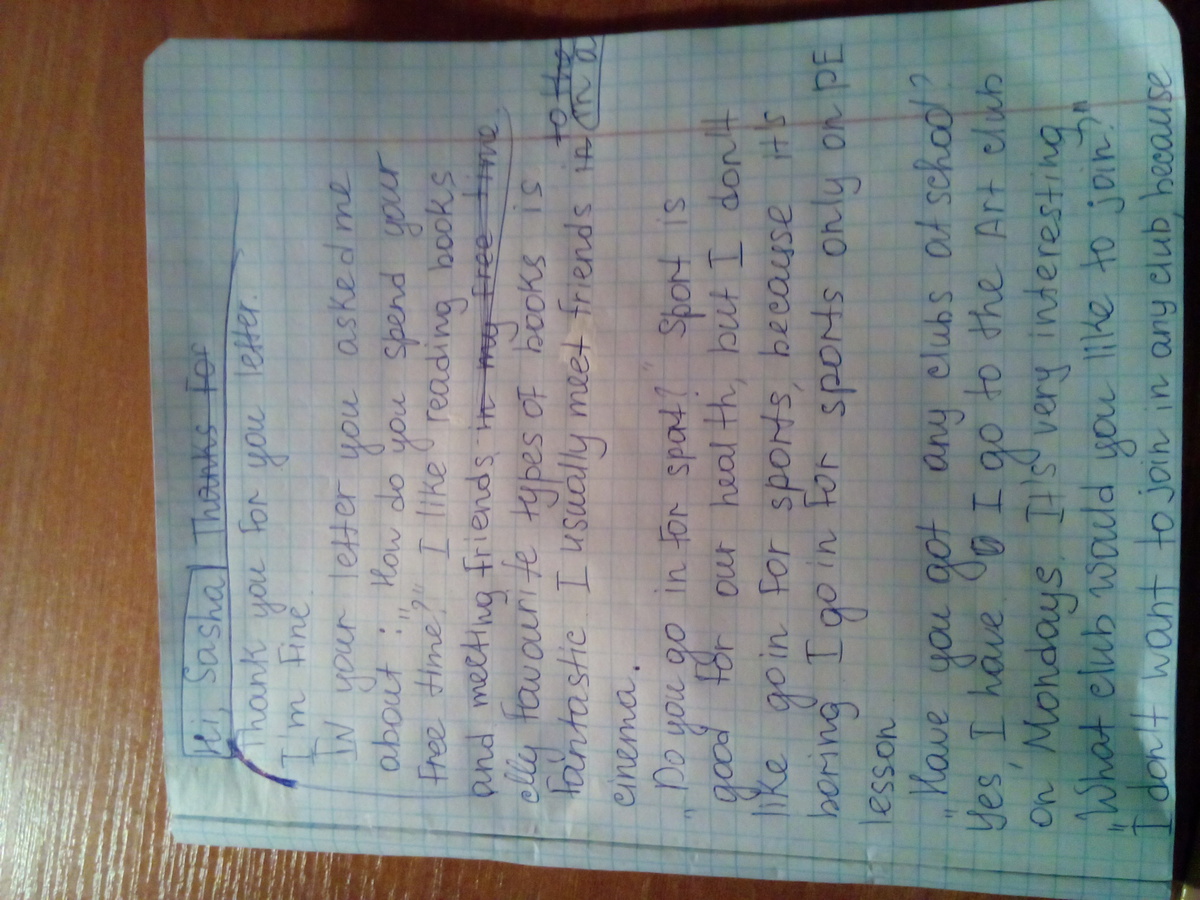 Hi, Sasha Thanks for
Thank you for you letter.
I'm fine.
In your letter you asked me
about: "How do you spend your
free time?" I like reading books
and meeting friends in my free time
My favourite types of books is
fantastic. I usually meet friends in to the
in a
cinema.
"Do you go in for sport?" Sport is
good for our health, but I don't
like go in for sports, because it's
boring I go in for sports only on PE
lesson
"Have you got any clubs at school?
Yes, I have. I go to the Art club
on Mondays. It's very interesting
"What club would you like to join?"
I don't want to join in any club, because